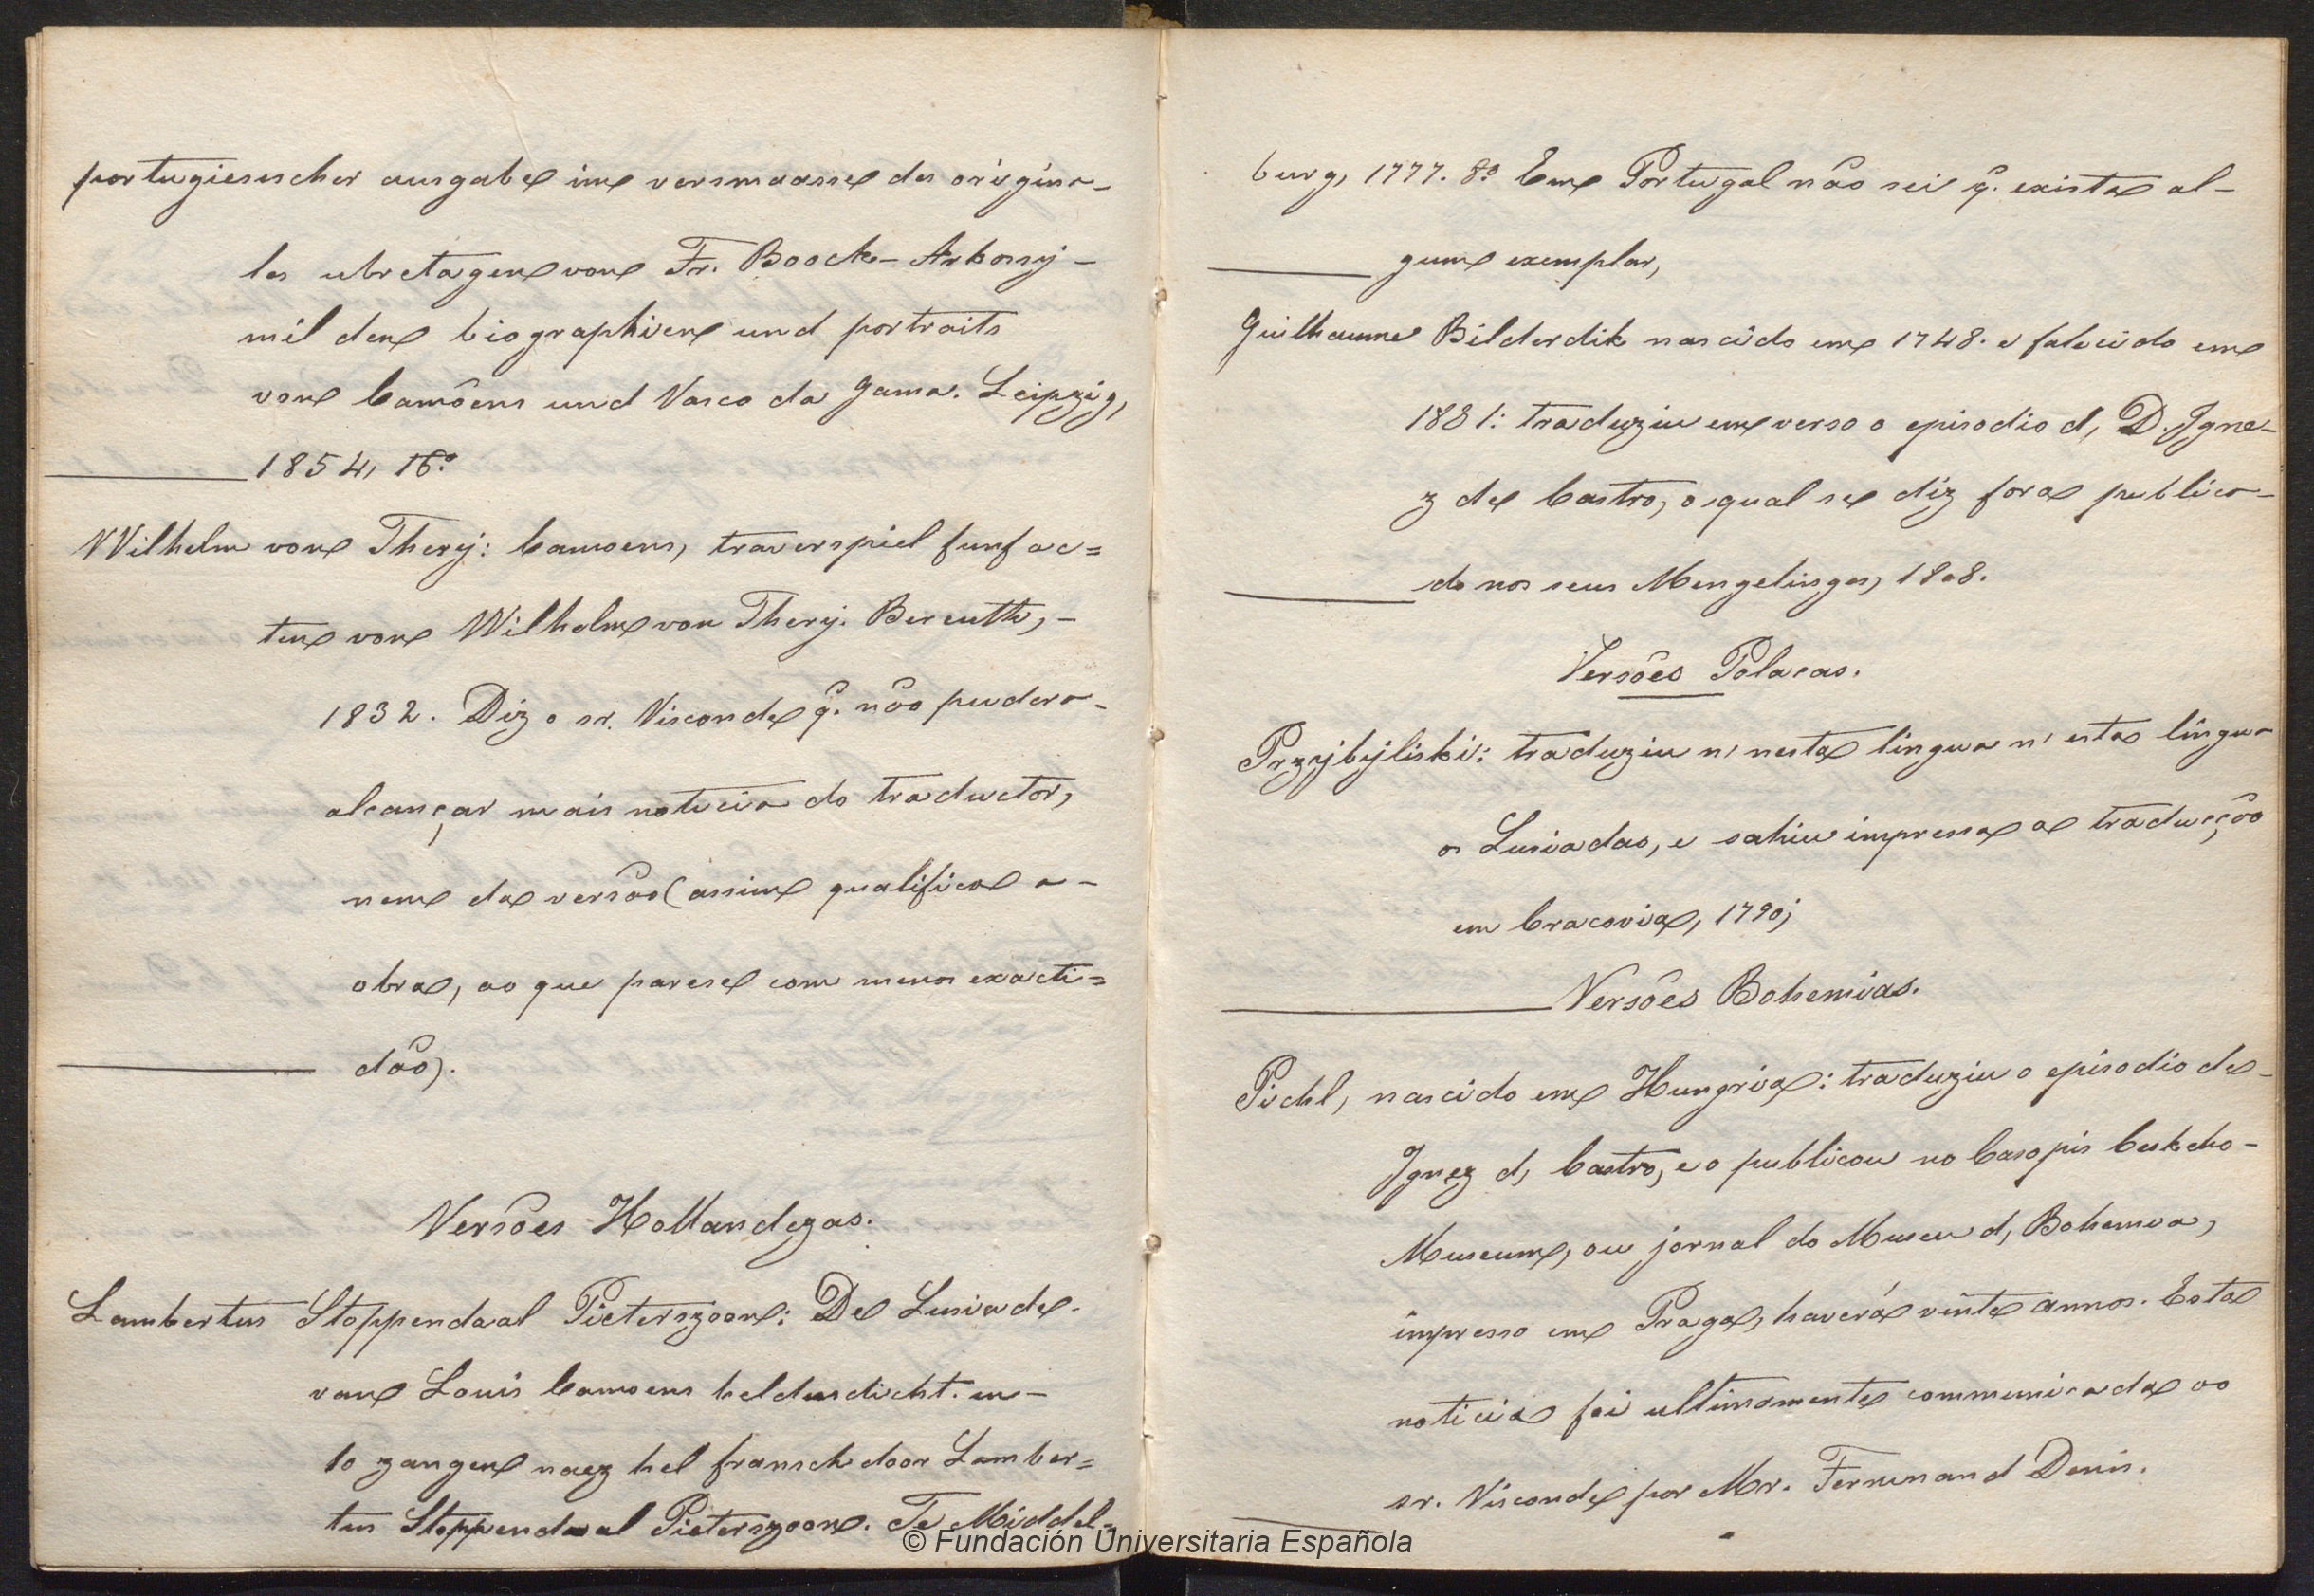 portugiesescher ausgabe im versmaasse des origina-
les ubretagen von Fr. Boock-Arkossy-
mil den biographien und portraits
von Camôens und Vasco da Gama. Leipzig,
1854, 16.º
Wilhelm von Thery: Camoens, traverspiel funf ac=
ten von Wilhelm von Thery. Bereuth, -
1832. Diz o sr. Visconde q. não pudera-
alcançar mais noticia do traductor,
nem da versão (assim qualifica a-
obra, ao que parese com menos exacti=
dão).
Versões Hollandezas.
Lambertus Stoppendaal Pieterszoon: De Lusiade-
van Louis Camoens heldusdicht. en-
10 zangen naez hel fransch door Lamber=
tus Stoppendaal Pieterszoon. Te Middel=
burg, 1777. 8.º Em Portugal não sei q. exista al-
gum exemplar,
Guilhaume Bilderdik nascido em 1748. e falecido em
1831: traduziu em verso o episodio d, D. Igne-
z de Castro, o qual se diz fora publica-
do nos seus Mengelinges, 1808.
Versões Polacas.
Przyjbyjliski: traduziu n' nesta lingua n' esta lingua
os Lusiadas, e sahiu impressa a traducção
em Cracovia, 1790;
Versões Bohemias.
Pichl, nascido em Hungria: traduziu o episodio de-
Ignez d, Castro, e o publicou no Casopis Ceskeho-
Museum, ou jornal do Museu d, Bohemia,
impresso em Praga, haverá vinte annos. Esta
noticia foi ultimamente communicada ao
sr. Visconde por Mr. Fernenand Denis.
© Fundación Universitaria Española